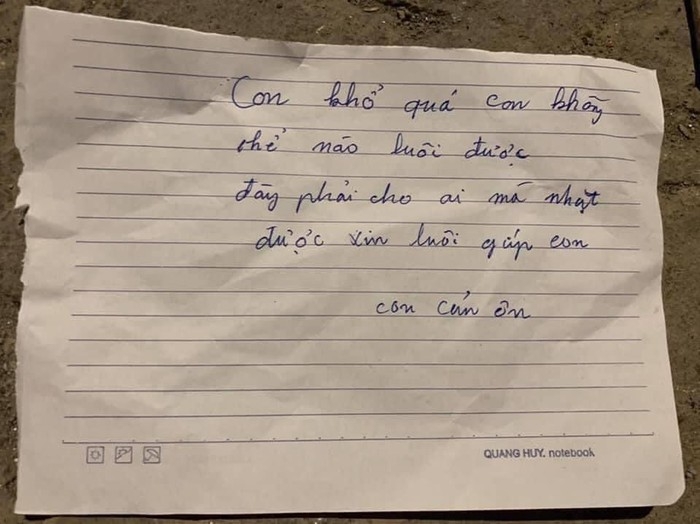 Con khổ quá con khõg
thể nào luôi được
đãg phải cho ai mà nhạt
được xin luôi gúp con
con cản ơn
QUANG HUY. notebook